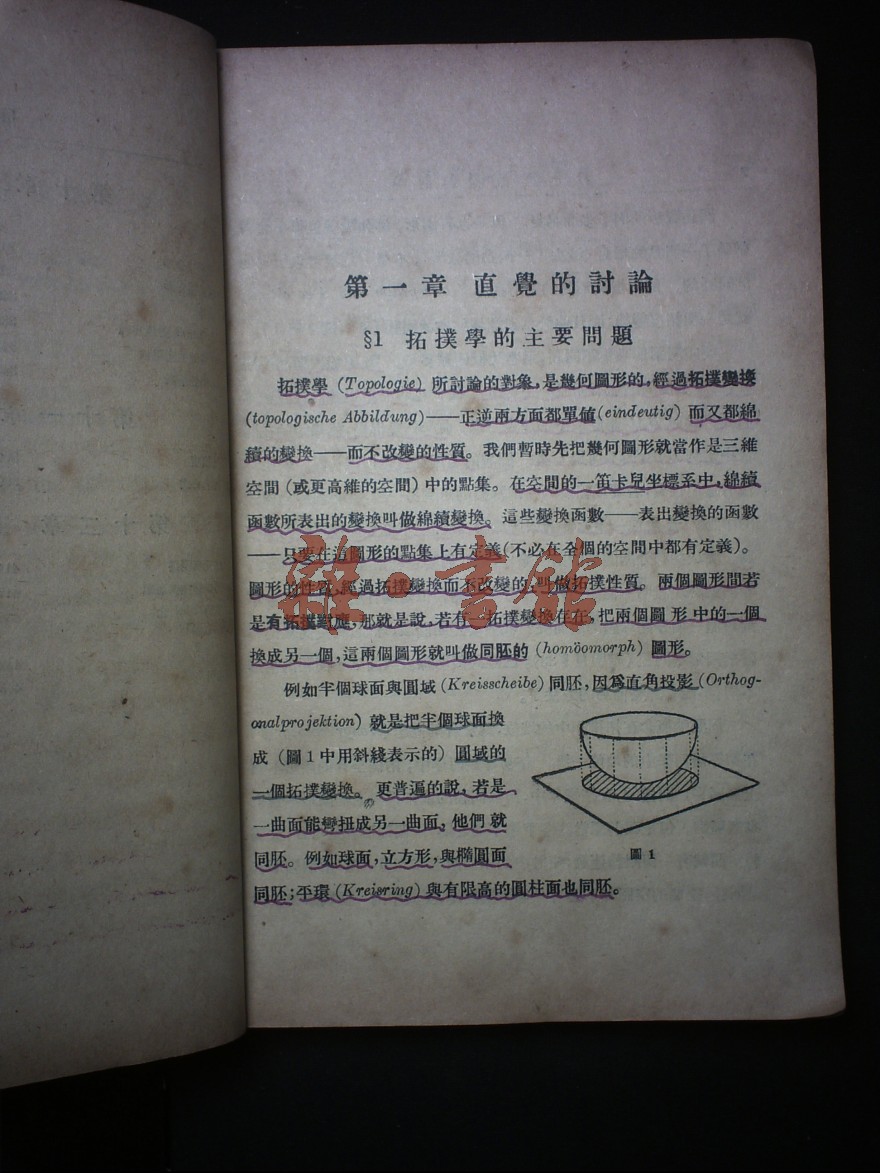 第一章 直覺的討論
§1 拓撲學的主要問題
拓撲學 (Topologie) 所討論的對象,是幾何圖形的,經過拓撲變換
(topologische Abbildung)——正逆兩方面都單值(eindeutig) 而又都綿
續的變換——而不改變的性質。我們暫時先把幾何圖形就當作是三維
空間 (或更高維的空間) 中的點集。在空間的一笛卡兒坐標系中,綿續
函數所表出的變換叫做綿續變換。這些變換函數——表出變換的函數
——只要在這圖形的點集上有定義(不必在全個的空間中都有定義)。
圖形的性質,經過拓撲變換而不改變的,叫做拓撲性質。兩個圖形間若
是有拓撲對應,那就是說,若有一拓撲變換存在,把兩個圖形中的一個
換成另一個,這兩個圖形就叫做同胚的 (homöomorph) 圖形。
例如半個球面與圓域 (Kreisscheibe) 同胚,因爲直角投影 (Orthog-
onalprojektion) 就是把半個球面換
成 (圖1中用斜綫表示的) 圓域的
一個拓撲變換。更普遍的說,若是
一曲面能彎扭成另一曲面,他們就
同胚。例如球面,立方形,與橢圓面
同胚;平環 (Kreisring) 與有限高的圓柱面也同胚。
圖 1
雜·書館